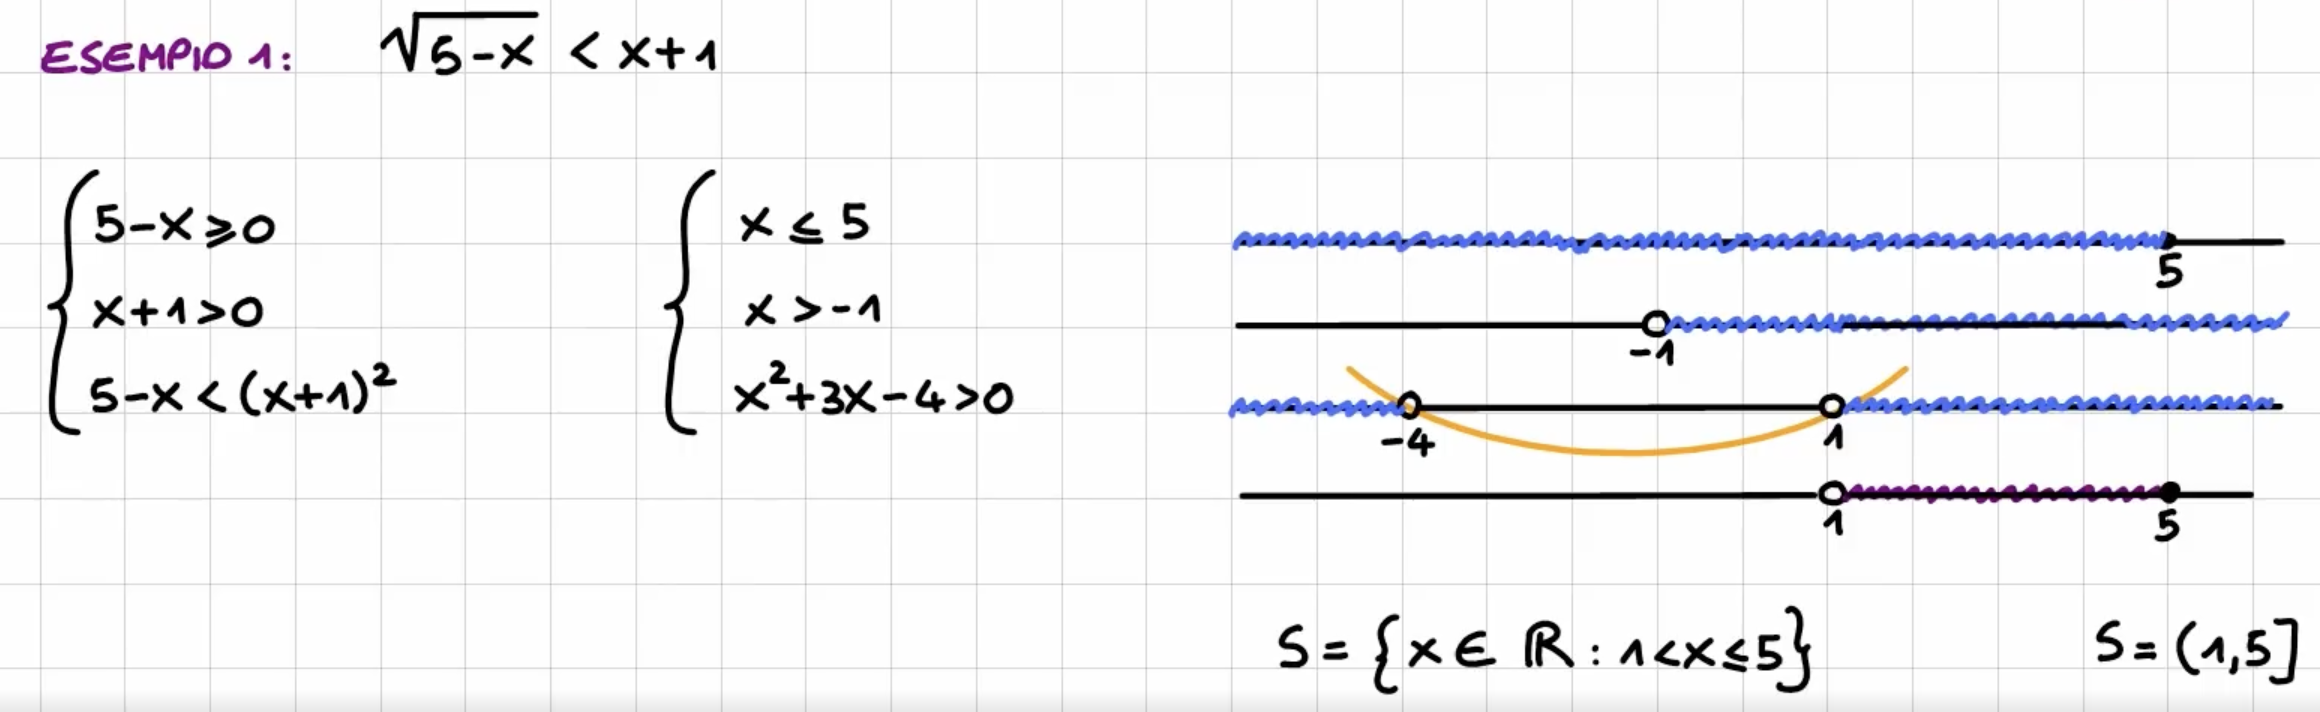 ESEMPIO 1: √(5-x) < x+1
5-x ⩾ 0
x+1>0
5-x < (x+1)²
x ≤ 5
x > -1
x²+3x-4>0
5
-1
-4 1
1 5
S = {x ∈ ℝ : 1<x≤5} S = (1,5]